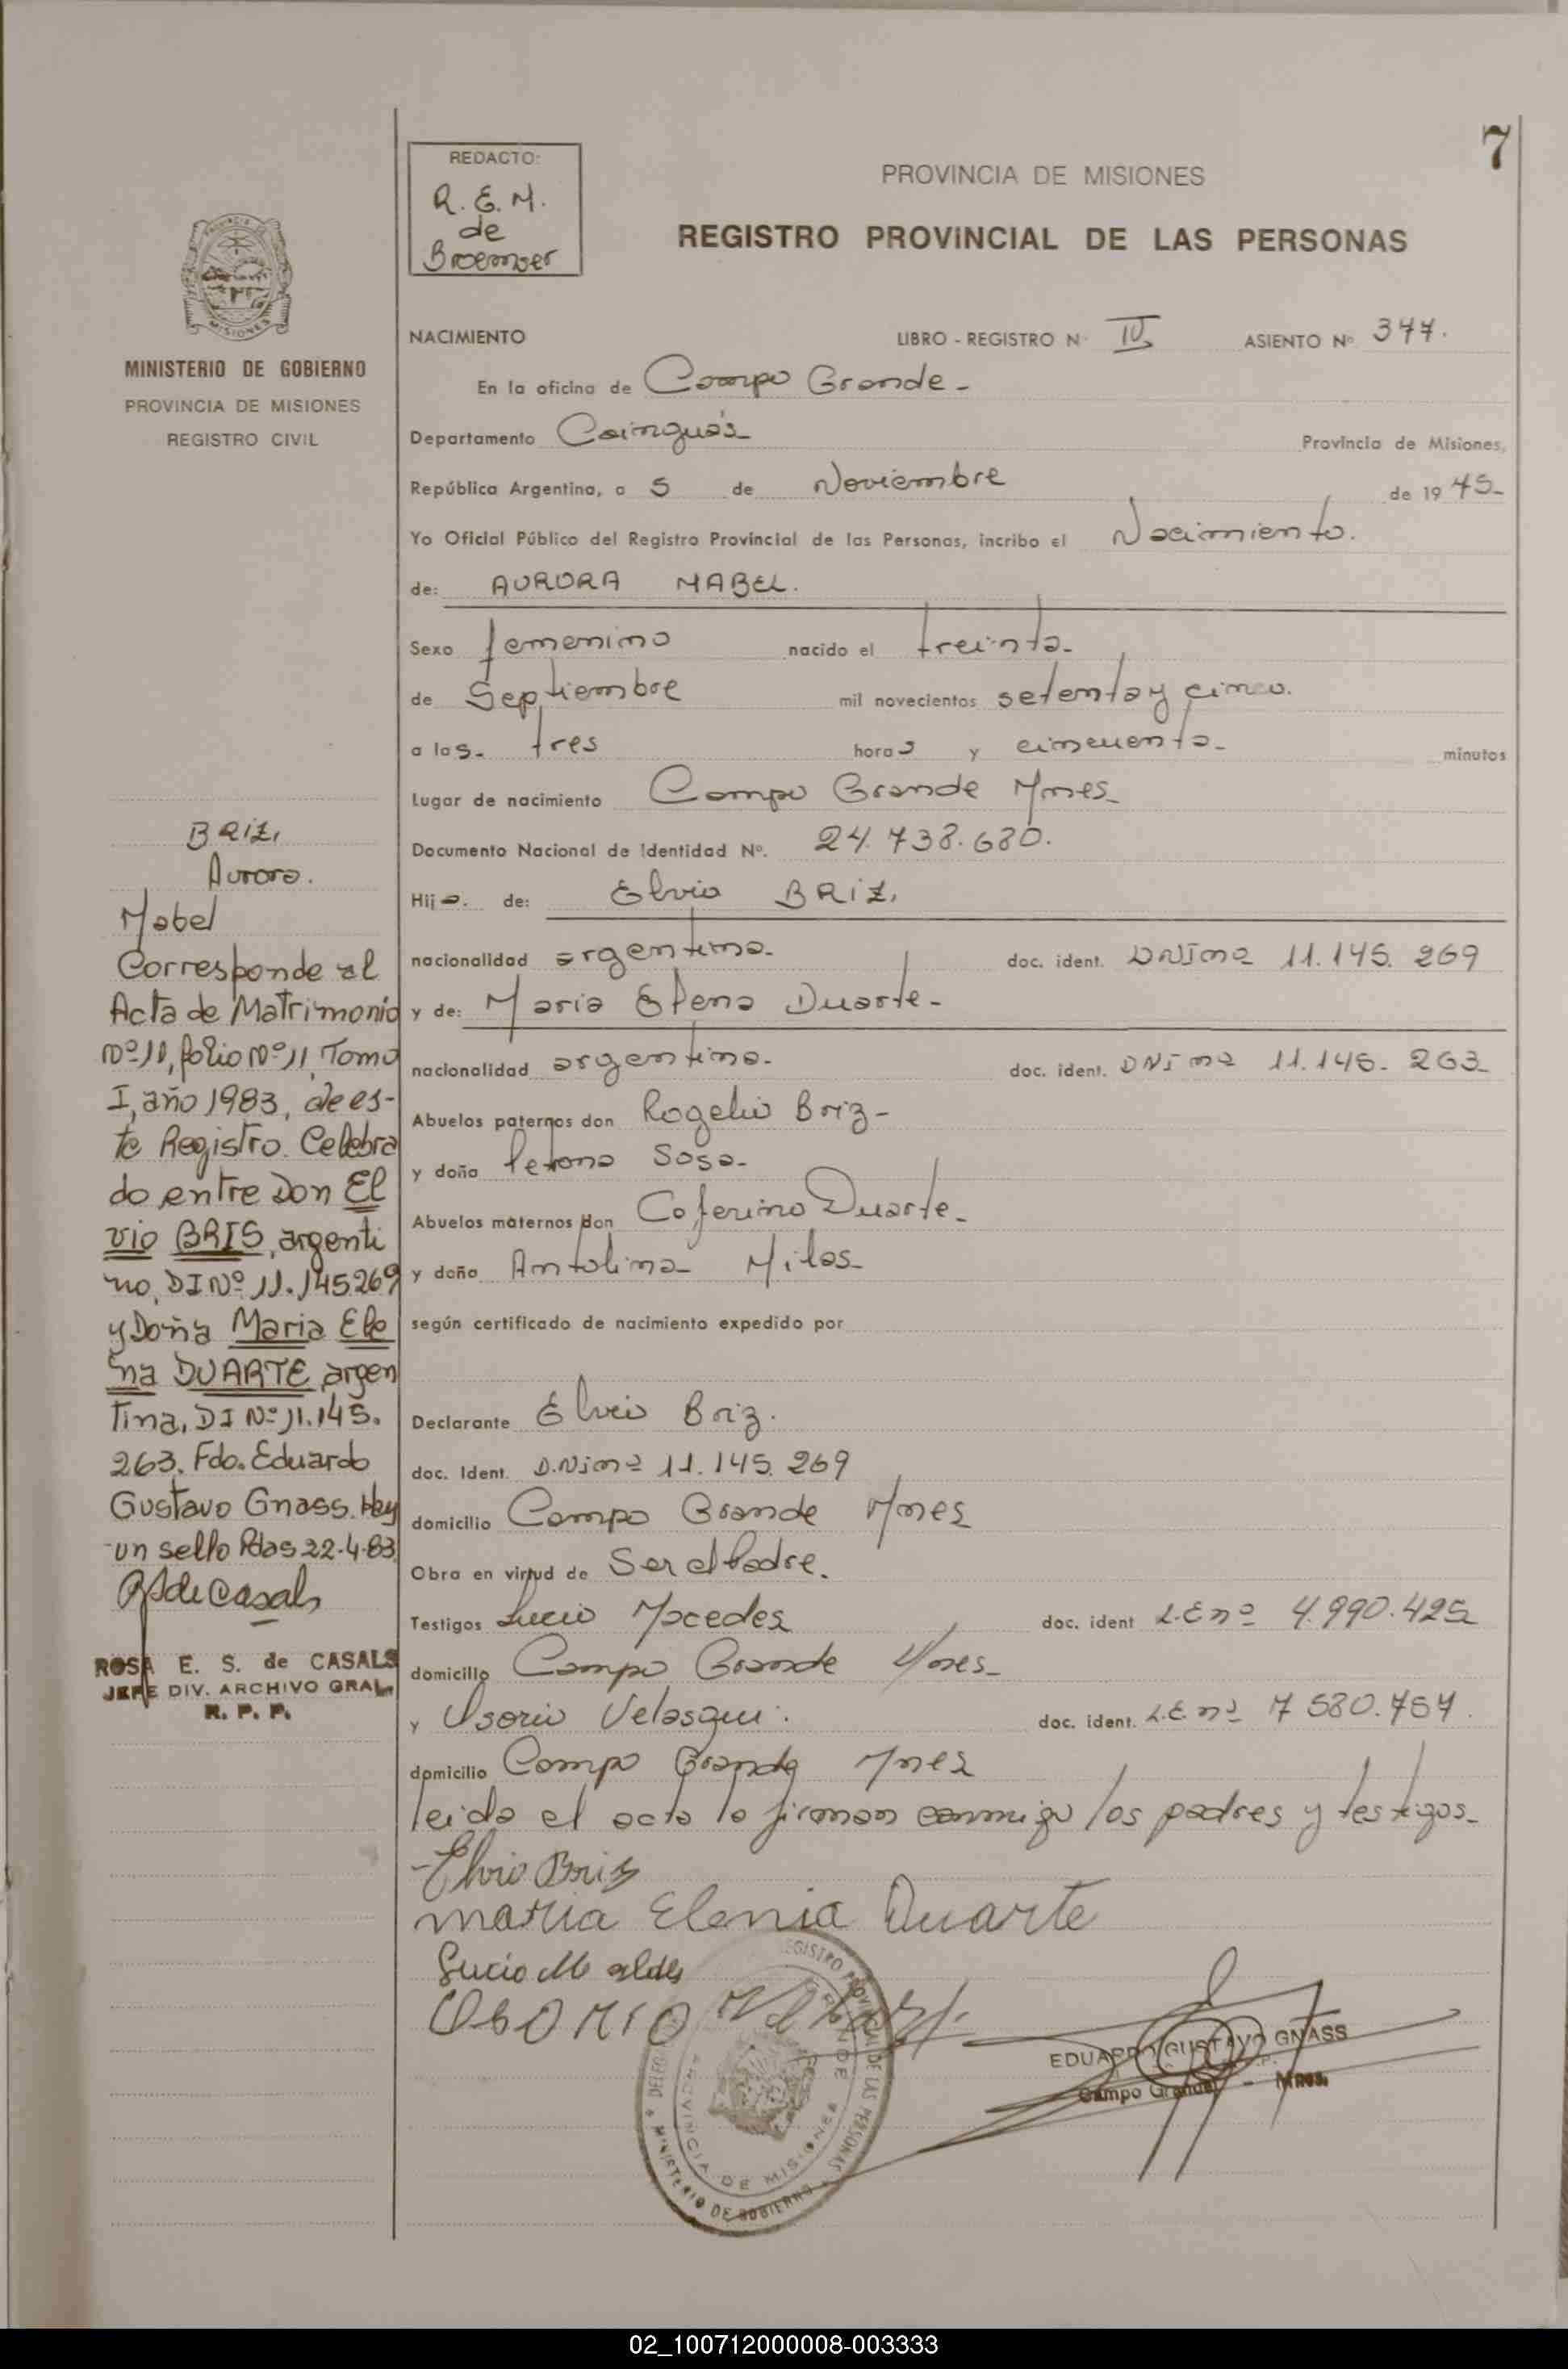 7
REDACTO:
R. E. M.
de
Broemser
PROVINCIA DE MISIONES
REGISTRO PROVINCIAL DE LAS PERSONAS
MINISTERIO DE GOBIERNO
PROVINCIA DE MISIONES
REGISTRO CIVIL
NACIMIENTO LIBRO - REGISTRO N° IV ASIENTO N° 377.
En la oficina de Campo Grande -
Departamento Cainguás Provincia de Misiones,
República Argentina, a 5 de Noviembre de 19 75-
Yo Oficial Público del Registro Provincial de las Personas, incribo el Nacimiento.
de: AURORA MABEL.
Sexo femenino nacido el treinta-
de Septiembre mil novecientos setenta y cinco.
a las- tres horas y cincuenta- minutos
Lugar de nacimiento Campo Grande Mnes-
Documento Nacional de Identidad N°. 24.738.680.
Hija. de: Elvio BRIZ,
nacionalidad argentina- doc. ident. DNIno 11.145.269
y de: Maria Elena Duarte-
nacionalidad argentina- doc. ident. DNI no 11.145.263-
Abuelos paternos don Rogelio Briz-
y doña Petrona Sosa-
Abuelos maternos don Coferino Duarte-
y doña Antolina Milas-
según certificado de nacimiento expedido por
Declarante Elvio Briz.
doc. Ident. D.NIno 11.145.269
domicilio Campo Grande Mnes
Obra en virtud de Ser el Padre.
Testigos Lucio Macedes doc. ident L.E no 4.990.425
domicilio Campo Grande Mnes-
y Osorio Velasqui. doc. ident. L.E. no 7 580.757.
domicilio Campo Grande Mnes
leida el acta la firman conmigo los padres y testigos-
Elvio Briz
maria Elenia Duarte
Lucio
Osorio
REGISTRO PROVINCIAL DE LAS PERSONAS
MINISTERIO DE GOBIERNO
PROVINCIA DE MISIONES
EDUARDO GUSTAVO GNASS
Campo Grande - Mnes.
BRIZ,
Aurora.
Mabel
Corresponde al
Acta de Matrimonio
Nº 11, folio Nº 11, Tomo
I, año 1983, de es-
te Registro. Celebra
do entre Don El
vio BRIS, argenti
no, DI Nº 11.145269
y Doña Maria Ele
na DUARTE, argen
tina, DI Nº 11.145.
263. Fdo. Eduardo
Gustavo Gnass. Hay
un sello Pdas 22-4-83
RSdeCasals
ROSA E. S. de CASALS
JEFE DIV. ARCHIVO GRAL.
R. P. P.
02_100712000008-003333